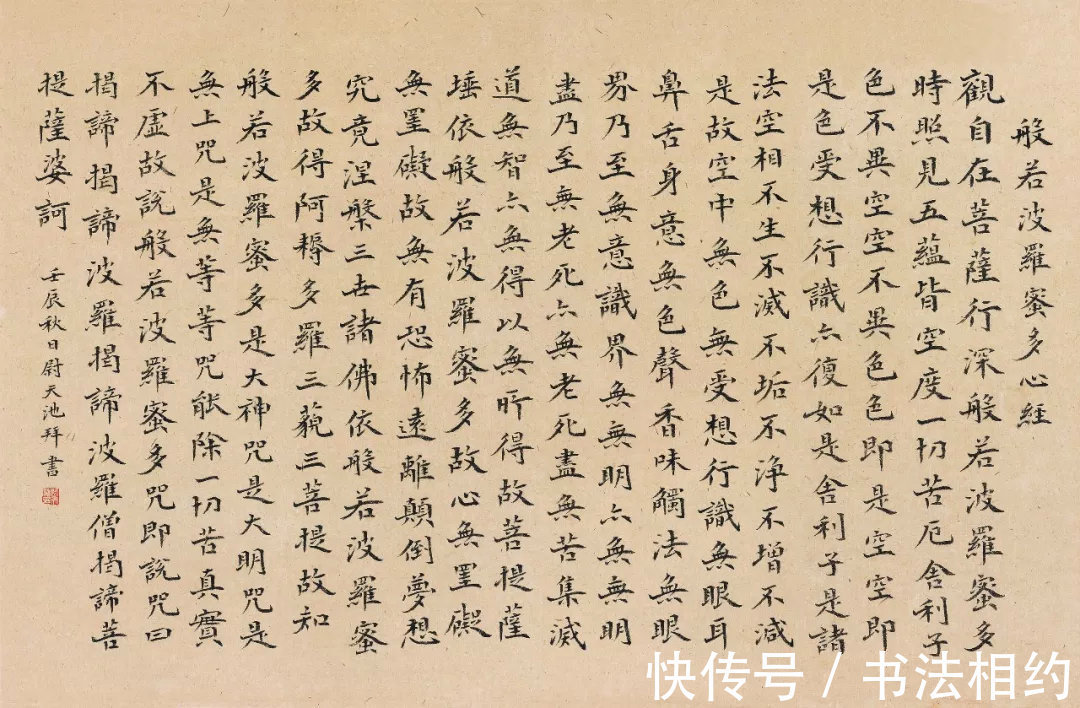 般若波羅蜜多心經
觀自在菩薩行深般若波羅蜜多
時照見五蘊皆空度一切苦厄舍利子
色不異空空不異色色即是空空即
是色受想行識亦復如是舍利子是諸
法空相不生不滅不垢不淨不增不減
是故空中無色無受想行識無眼耳
鼻舌身意無色聲香味觸法無眼
界乃至無意識界無無明亦無無明
盡乃至無老死亦無老死盡無苦集滅
道無智亦無得以無所得故菩提薩
埵依般若波羅蜜多故心無罣礙
無罣礙故無有恐怖遠離顛倒夢想
究竟涅槃三世諸佛依般若波羅蜜
多故得阿耨多羅三藐三菩提故知
般若波羅蜜多是大神咒是大明咒是
無上咒是無等等咒能除一切苦真實
不虛故說般若波羅蜜多咒即說咒曰
揭諦揭諦波羅揭諦波羅僧揭諦菩
提薩婆訶
壬辰秋日尉天池拜書
快传号 / 书法相约